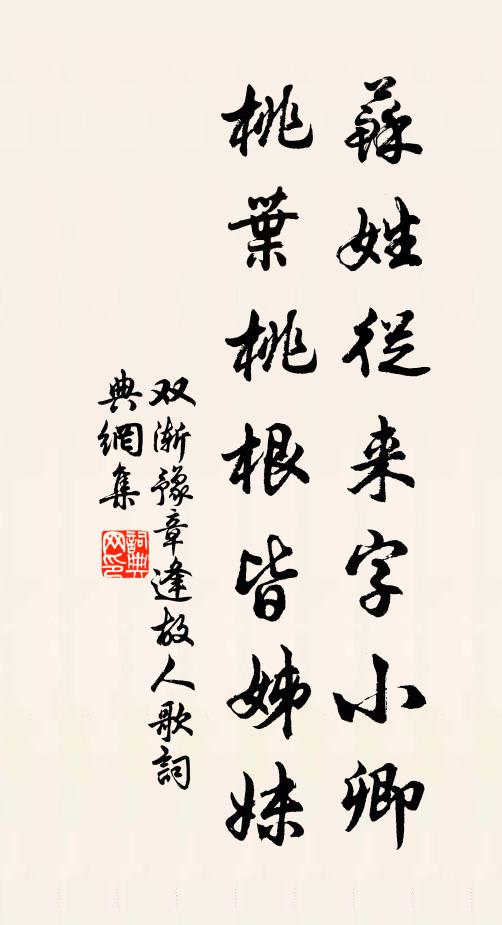 蘇姓從来字小卿
桃葉桃根皆姊妹
双渐豫章逢故人歌詞
典網集
詞典
网印